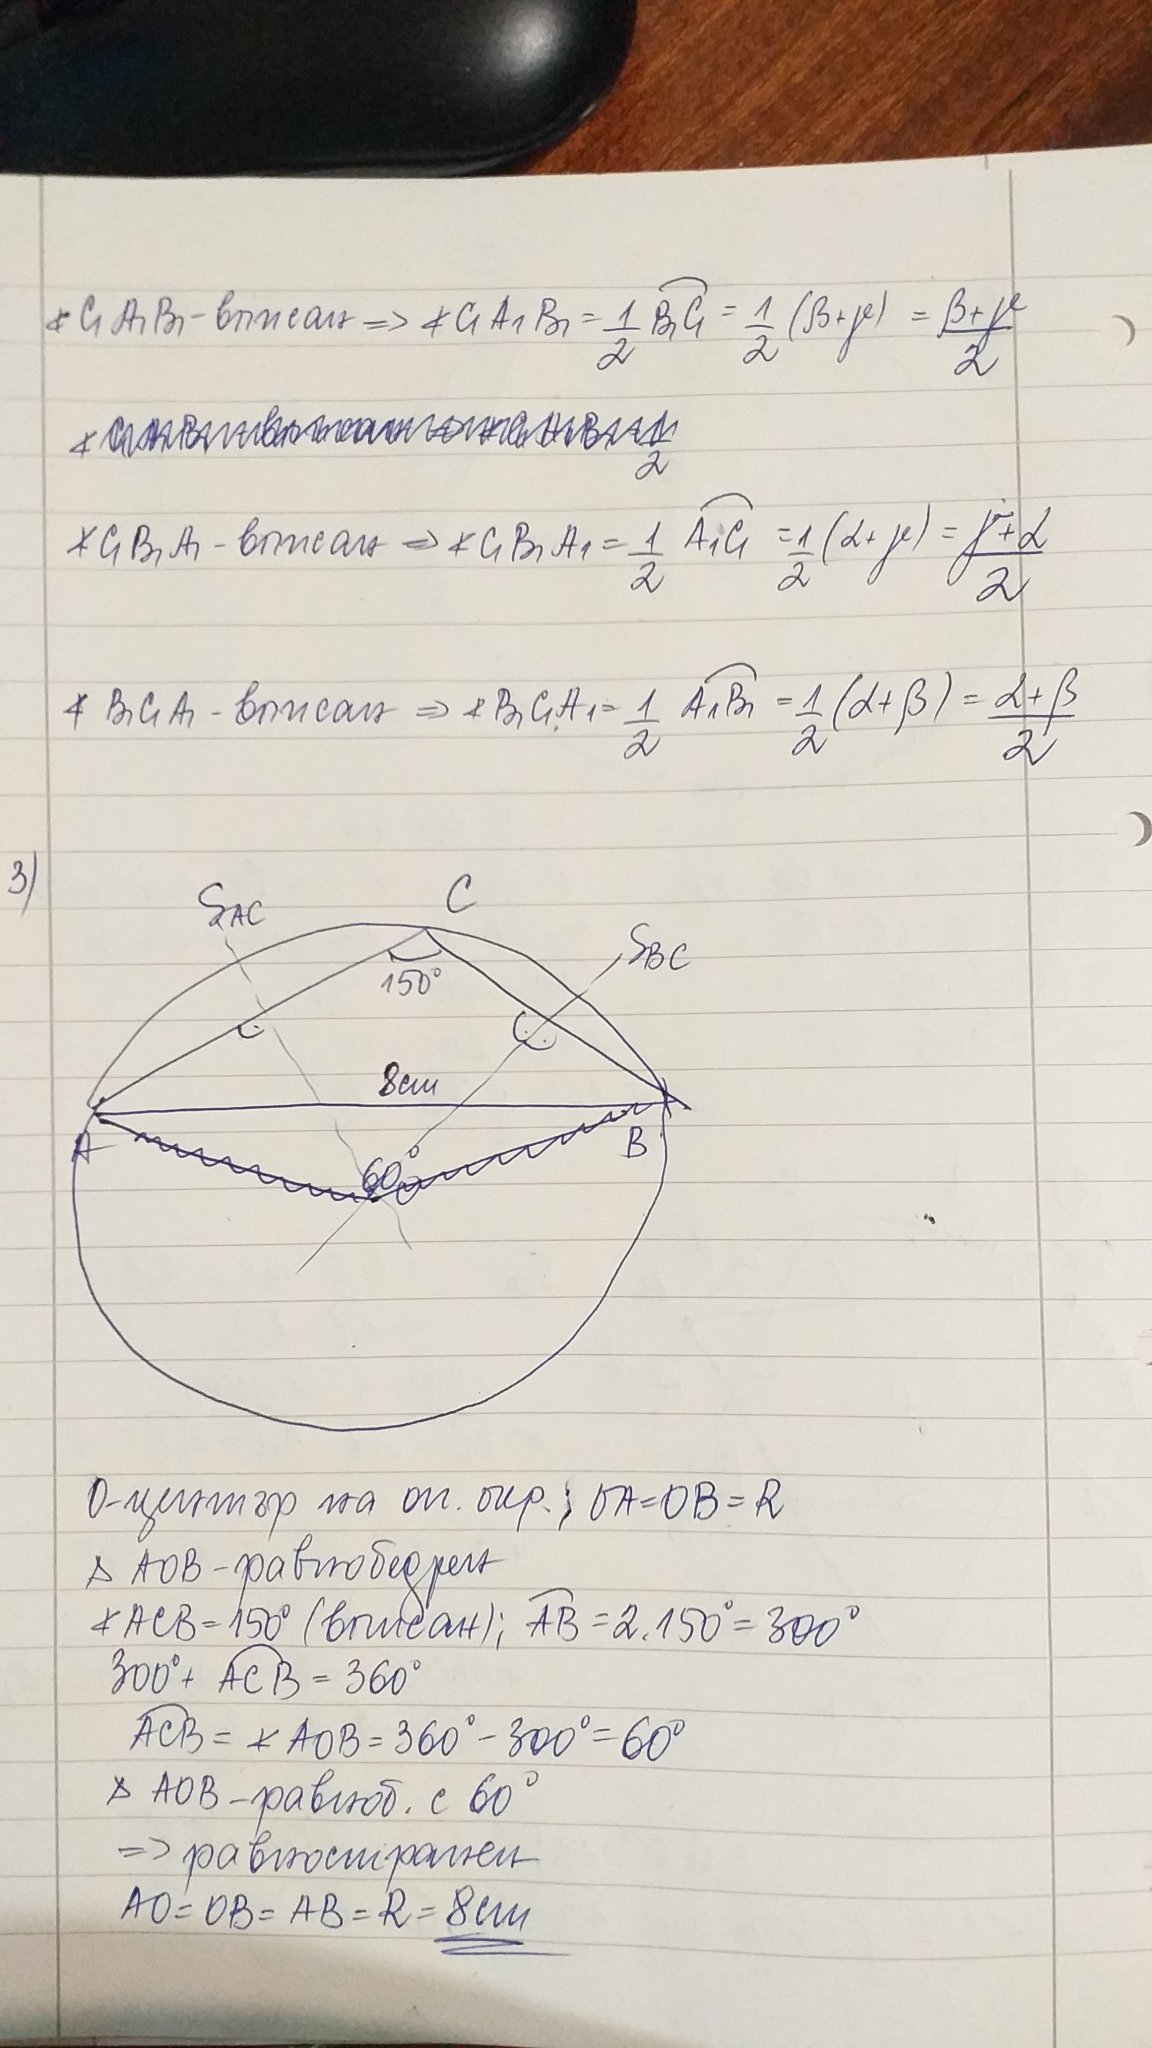 ∢C₁A₁B₁ - вписан => ∢C₁A₁B₁ = 1/2 B₁C₁ = 1/2 (β+γ) = (β+γ)/2
∢ 2
∢C₁B₁A₁ - вписан => ∢C₁B₁A₁ = 1/2 A₁C₁ = 1/2 (α+γ) = (γ+α)/2
∢B₁C₁A₁ - вписан => ∢B₁C₁A₁ = 1/2 A₁B₁ = 1/2 (α+β) = (α+β)/2
3)
SAC
C
SBC
150°
8cm
A
B
60°
O
O-център на оп. окр.; OA=OB=R
△ AOB - равнобедрен
∢ACB=150° (вписан); AB = 2.150° = 300°
300° + ACB = 360°
ACB = ∢AOB = 360° - 300° = 60°
△ AOB - равноб. с 60°
=> равностранен
AO = OB = AB = R = 8cm